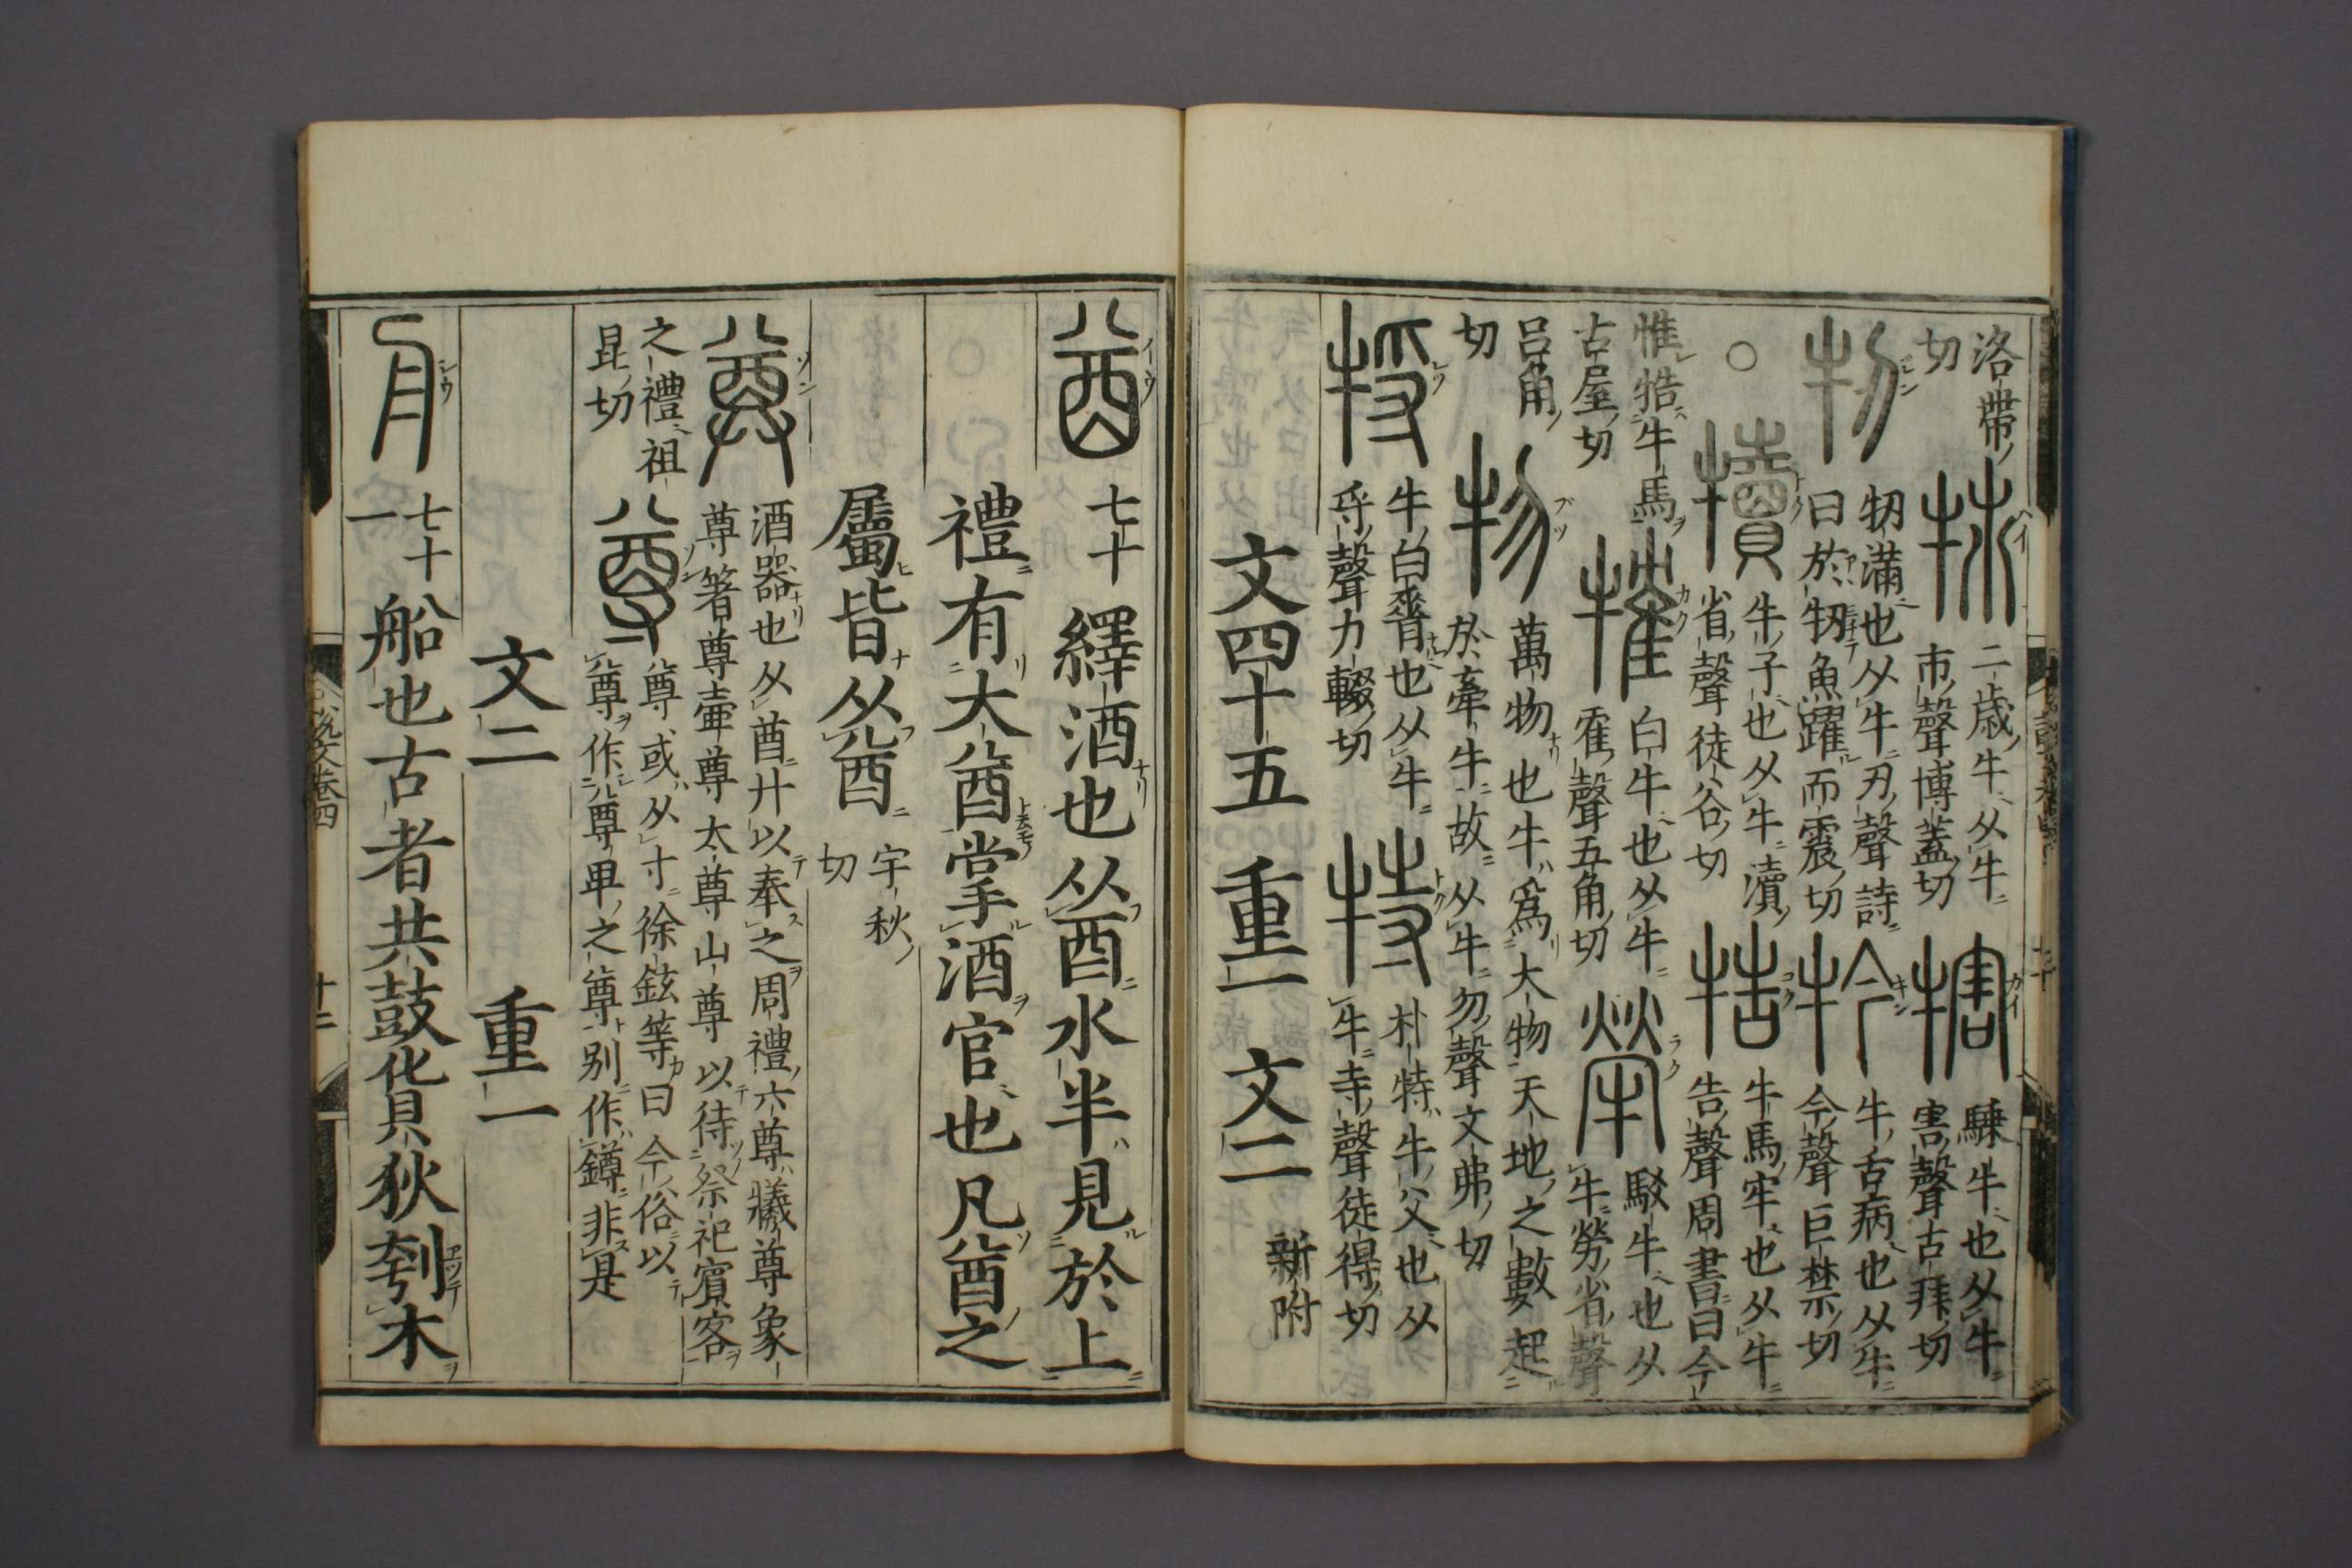 洛帶切 㸬 二歲牛从牛巿聲博蓋切 犗 騬牛也从牛害聲古拜切
牣 牣滿也从牛刃聲詩曰於牣魚躍而震切 𤘡 牛舌病也从牛今聲巨禁切
○ 犢 牛子也从牛瀆省聲徒谷切 牿 牛馬牢也从牛告聲周書曰今
惟牿牛馬古屋切 㹊 白牛也从牛隺聲五角切 犖 駁牛也从牛勞省聲
呂角切 物 萬物也牛爲大物天地之數起於牽牛故从牛勿聲文弗切
㸹 牛白脊也从牛寽聲力輟切 特 朴特牛父也从牛寺聲徒得切
文四十五 重一 文二 新附
酋 七十 繹酒也从酉水半見於上
禮有大酋掌酒官也凡酋之
屬皆从酋 字秋切
尊 酒器也从酋廾以奉之周禮六尊犧尊象尊箸尊壷尊太尊山尊以待祭祀賓客
之禮祖昆切 尊 尊或从寸徐鉉等曰今俗以尊作尊卑之尊別作罇非是
文二 重一
舟 七十一 船也古者共鼓化貝狄刳木
說文卷四 十二